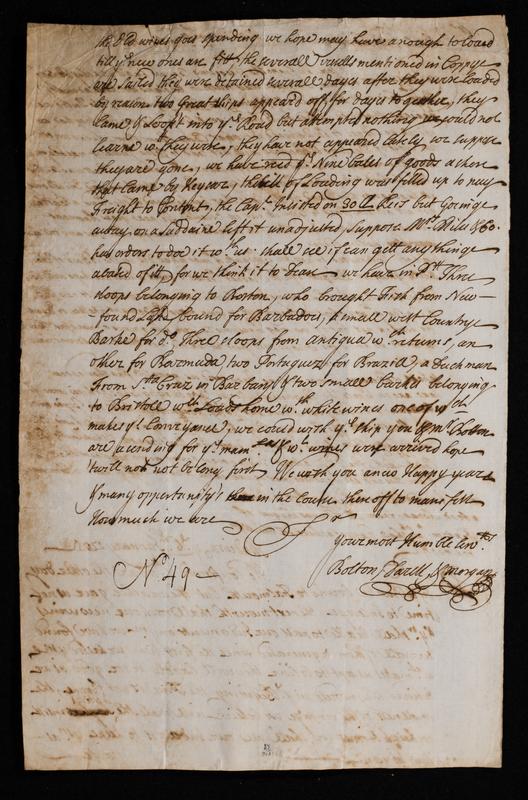 the Old wines goes spending we hope may have anough to load
till ye new ones are fitt, the severall vessells mentioned in Coppye
are sailed they were detained severall dayes after they were loaded
by reason two Great ships appeared off, for dayes to geather, they
came & Loopt into ye Road but attempted nothing we could not
learne wt they were, they have not appeared lately we suppose
they are gone, we have recd ye Nine bales of goods a chest
that came by Keymer, the bill of Loading was filled up to pay
Freight to Content, the Capt. Insisted on 30 ll heis but Goeinge
away on a suddaine left it unadjusted, suppose Mr Miles & Co.
has orders to doe it wth us. shall see if can gett any thinge
abated of itt, for we think it to deare we have in Pt Three
sloops belonging to Boston, who brought Fish from New-
-found Land bound for Barbados, a small west Countrye
Barke for do. Three sloops from Antiqua wth returns, an
other for Barmuda two Portuguez for Brazill, a Duchman
From Sta Cruz in Barbary & two small barkes belonging
to Bristoll wch Loads home wth white wines one of wch
makes ys Conveyance, we could wish ye ship you & Mr Bolton
are a conding for ys were arrived hope
twill not be long first, We wish you a new Happy yeare
& many oppertunity's in the Course thereoff to manifest
How much we are
Sr
your most Humble Servts
Bolton, Hayell & Morgan
No 49